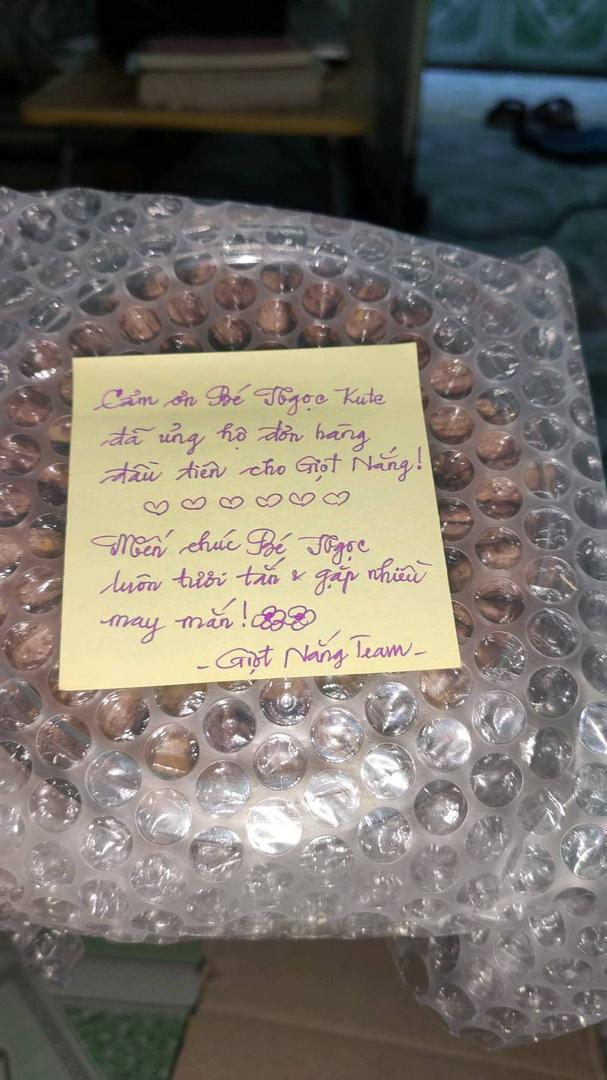 Cảm ơn Bé Ngọc Kute
đã ủng hộ đơn hàng
đầu tiên cho Giọt Nắng!
Mến chúc Bé Ngọc
luôn tươi tắn & gặp nhiều
may mắn!
- Giọt Nắng Team -